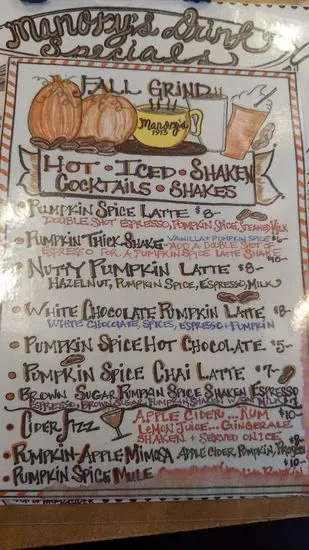 Manory's Drink
Specials
FALL GRIND
Manory's
1913
HOT • ICED • SHAKEN
COCKTAILS • SHAKES
• PUMPKIN SPICE LATTE $8-
DOUBLE SHOT ESPRESSO, PUMPKIN, SPICE, STEAMED MILK
• PUMPKIN THICK-SHAKE VANILLA + PUMPKIN SPICE $6-
*ADD A DOUBLE SHOT OF
ESPRESSO FOR A PUMPKIN SPICE LATTE SHAKE
• NUTTY PUMPKIN LATTE $8-
HAZELNUT, PUMPKIN SPICE, ESPRESSO, MILK
• WHITE CHOCOLATE PUMPKIN LATTE $8-
WHITE CHOCOLATE, SPICES, ESPRESSO + PUMPKIN
• PUMPKIN SPICE HOT CHOCOLATE $5-
• PUMPKIN SPICE CHAI LATTE $7-
• BROWN SUGAR PUMPKIN SPICE SHAKEN ESPRESSO
ESPRESSO, BROWN SUGAR, PUMPKIN SHAKEN W/ MILK
• CIDER FIZZ APPLE CIDER... RUM $10-
LEMON JUICE... GINGERALE
SHAKEN + SERVED ON ICE
• PUMPKIN-APPLE MIMOSA APPLE CIDER, PUMPKIN, PROSECCO $8-
• PUMPKIN SPICE MULE $10-